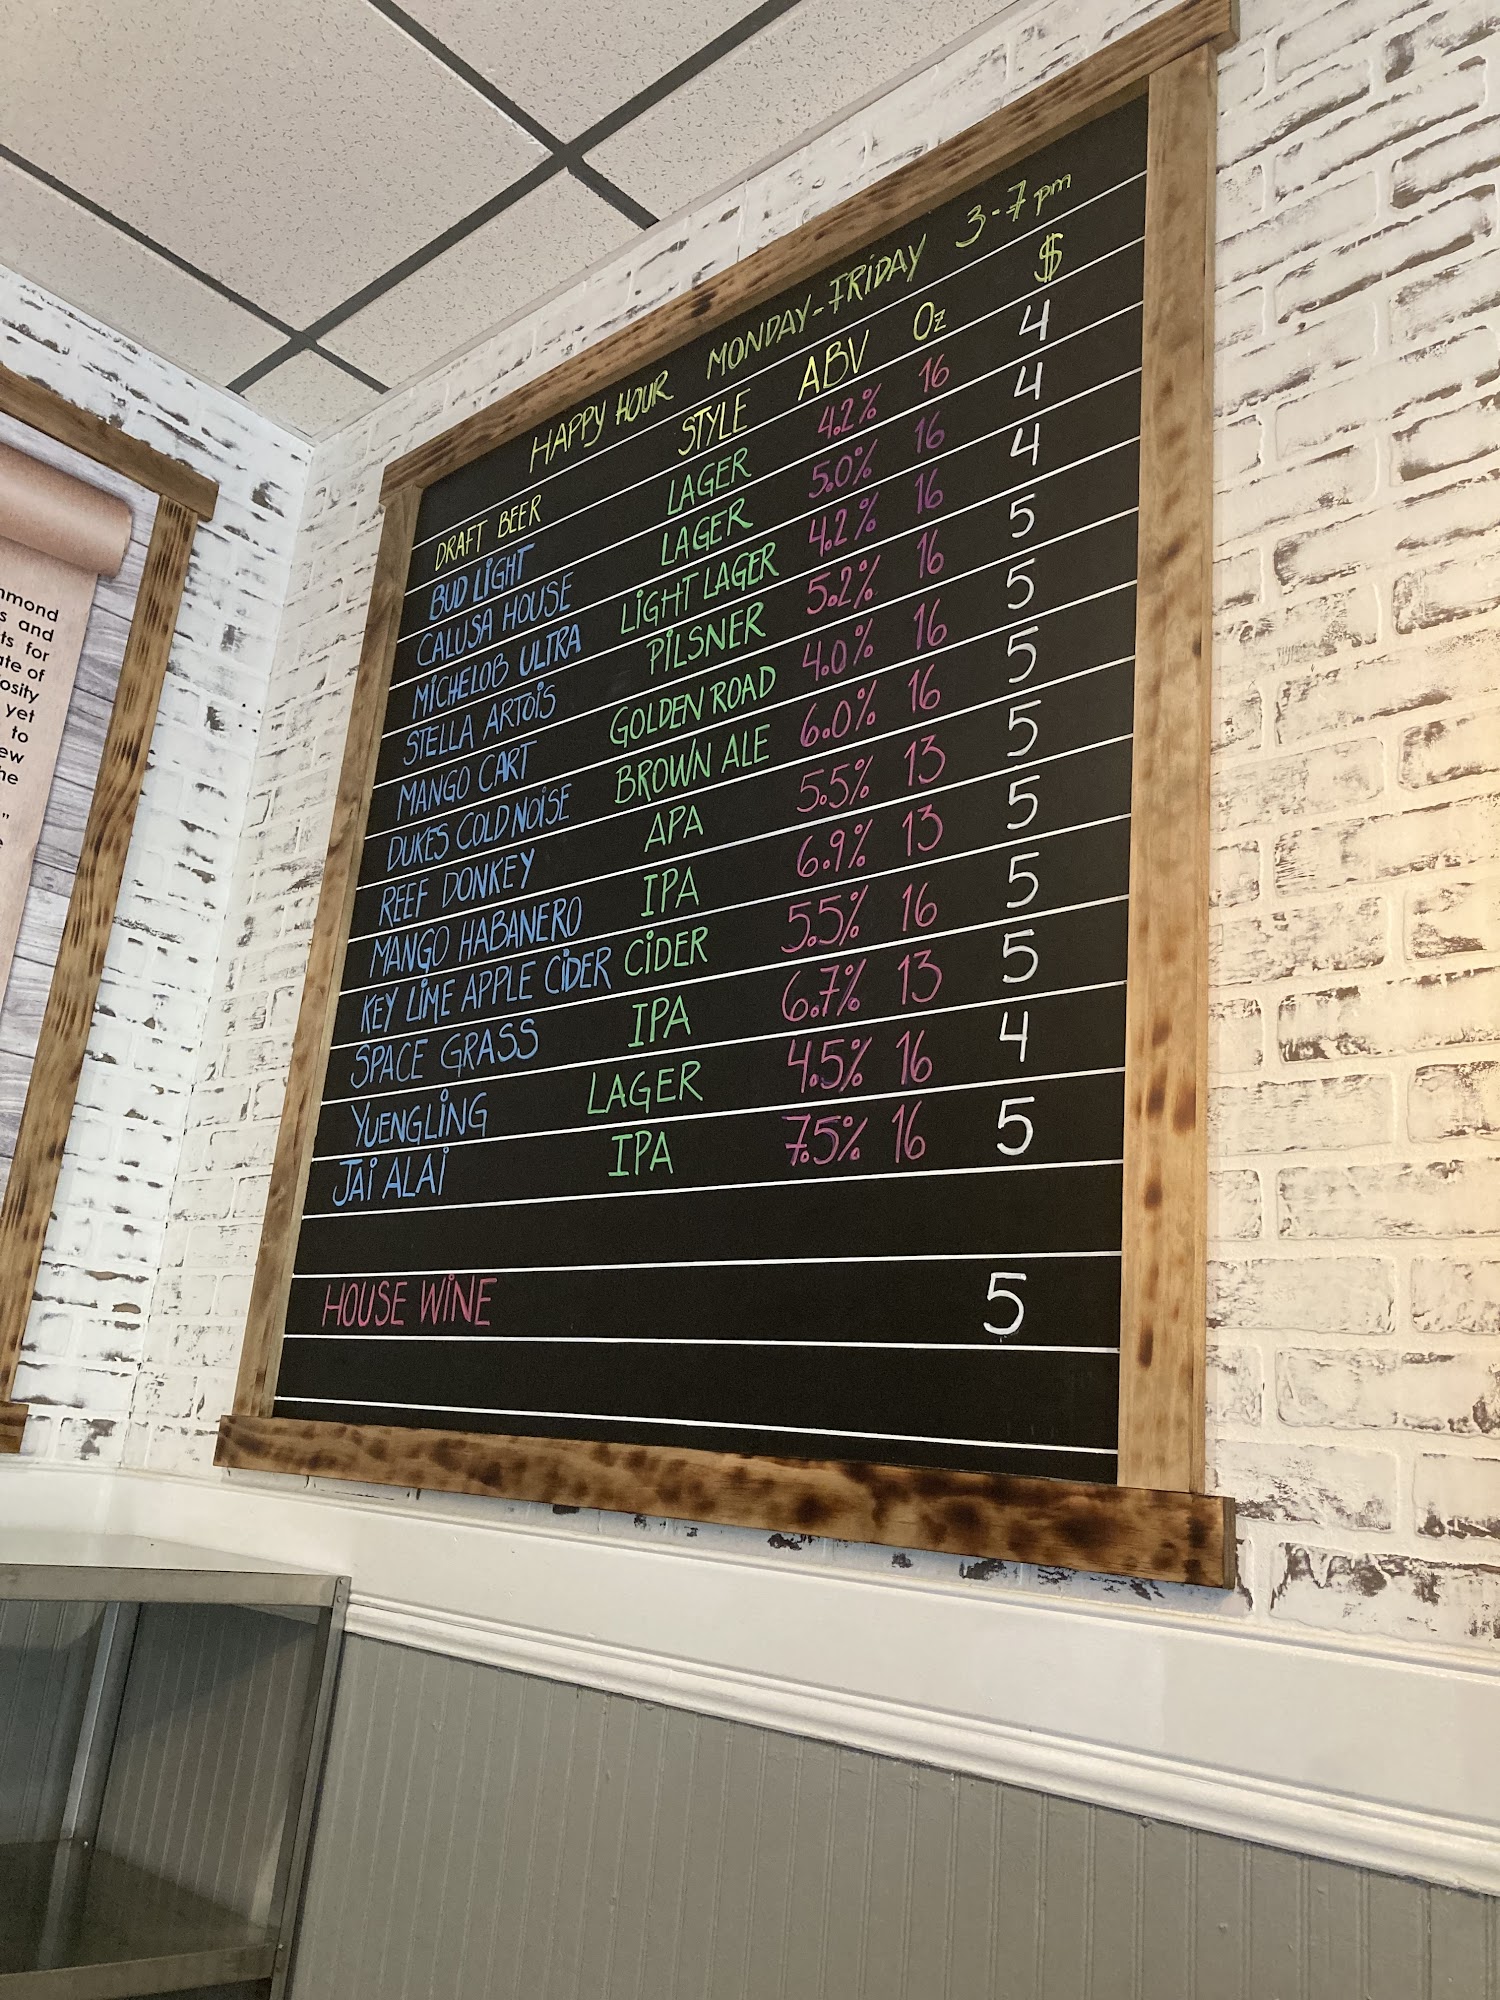 and
for
of
yet
to
HAPPY HOUR MONDAY-FRIDAY 3-7pm
DRAFT BEER STYLE ABV Oz $
BUD LIGHT LAGER 4.2% 16 4
CALUSA HOUSE LAGER 5.0% 16 4
MICHELOB ULTRA LIGHT LAGER 4.2% 16 4
STELLA ARTOIS PILSNER 5.2% 16 5
MANGO CART GOLDEN ROAD 4.0% 16 5
DUKES COLD NOISE BROWN ALE 6.0% 16 5
REEF DONKEY APA 5.5% 13 5
MANGO HABANERO IPA 6.9% 13 5
KEY LIME APPLE CIDER CIDER 5.5% 16 5
SPACE GRASS IPA 6.7% 13 5
YUENGLING LAGER 4.5% 16 4
JAI ALAI IPA 7.5% 16 5
HOUSE WINE 5